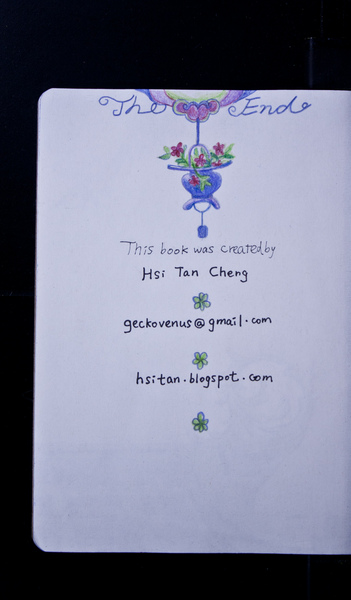 The End
This book was created by
Hsi Tan Cheng
geckovenus@gmail.com
hsitan.blogspot.com